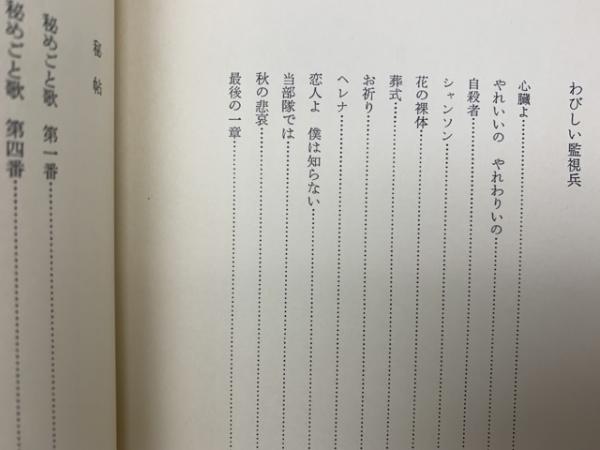 わびしい監視兵
心臓よ
やれいいの　やれわりいの
自殺者
シャンソン
花の裸体
葬式
お祈り
ヘレナ
恋人よ　僕は知らない
当部隊では
秋の悲哀
最後の一章
秘帖
秘めごと歌　第一番
秘めごと歌　第四番